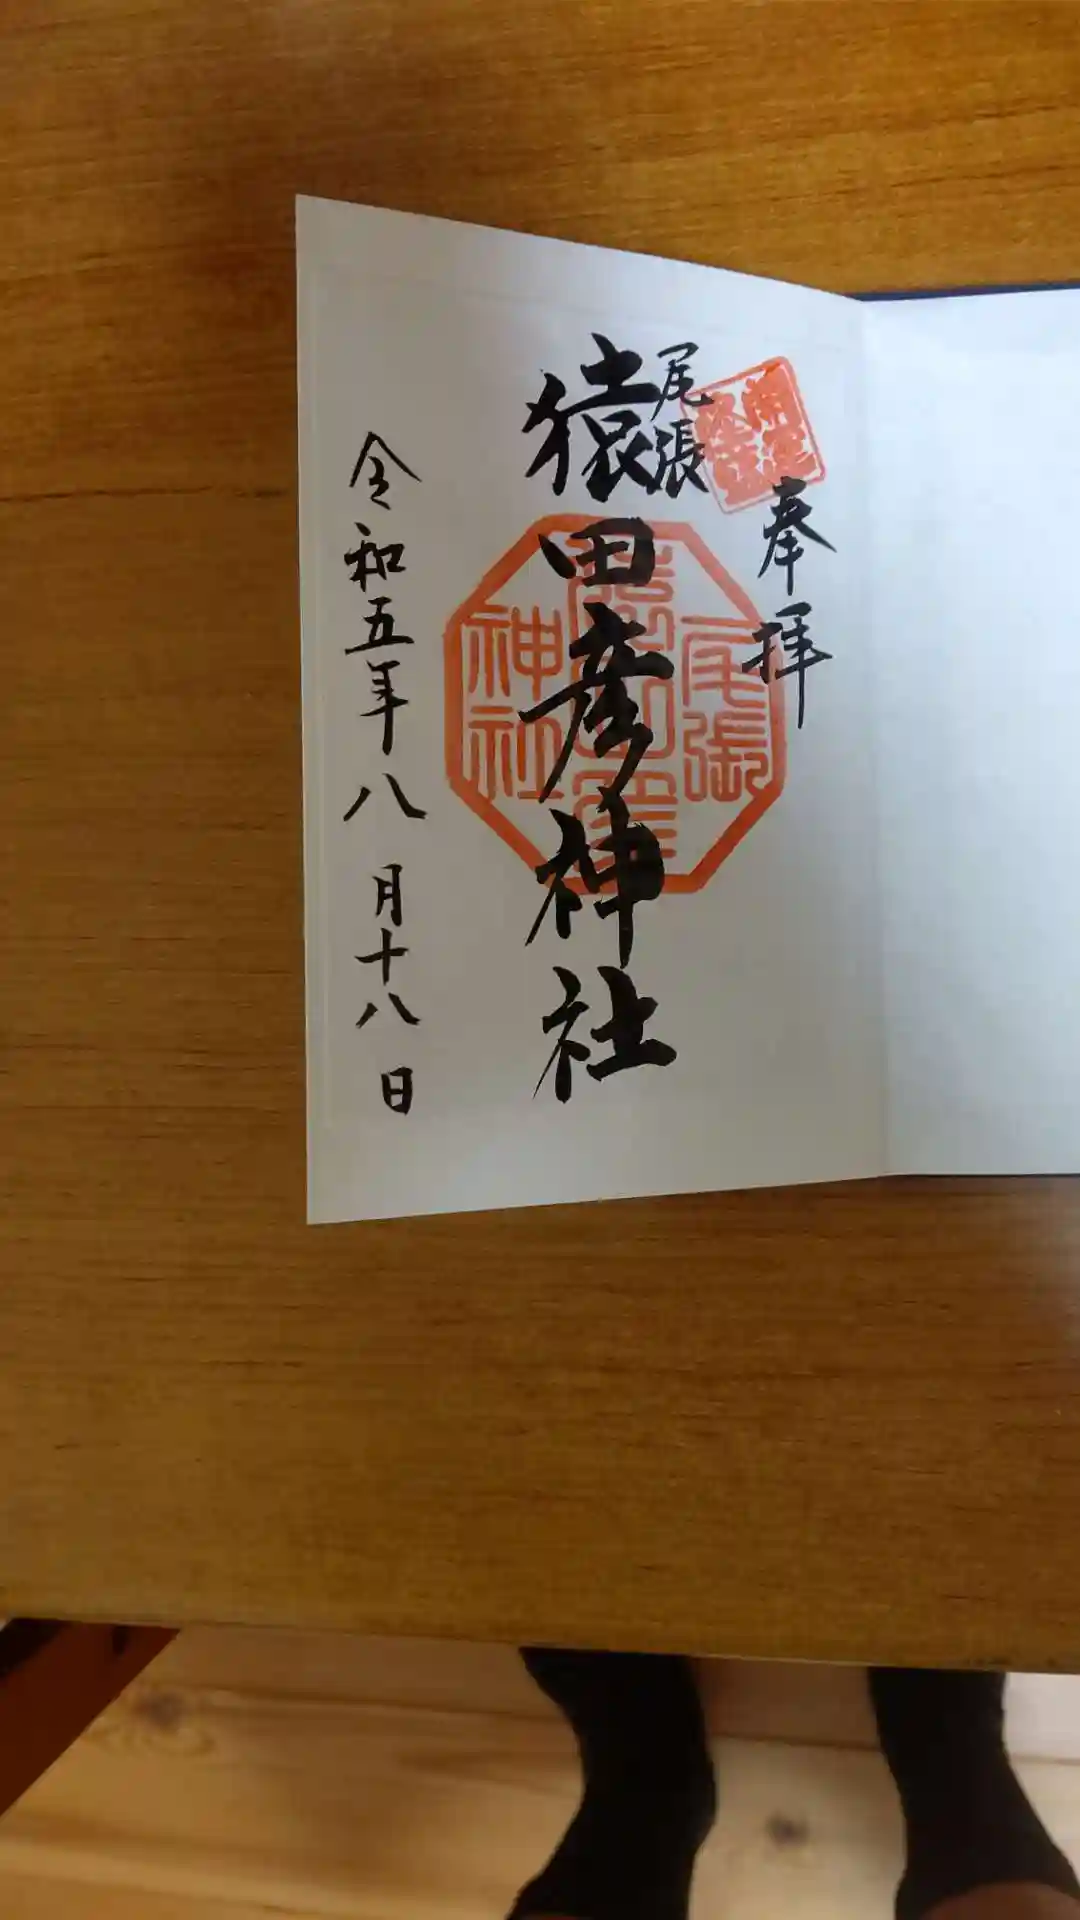 奉拝
尾張
猿田彦神社
令和五年八月十八日
尾張
猿田彦
神社